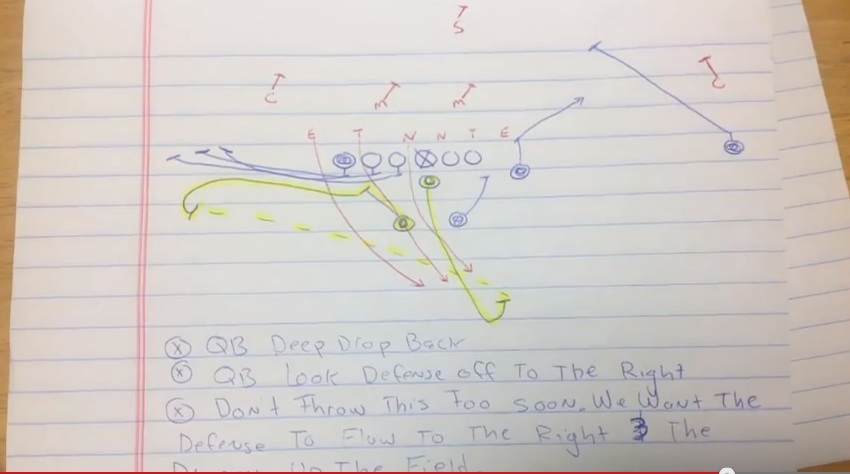 S
C
C
M
M
E T N N T E
X
ⓧ QB Deep Drop Back
ⓧ QB Look Defense off To The Right
ⓧ Don't Throw This Too Soon. We Want The
Defense To Flow To The Right & The
Up The Field.